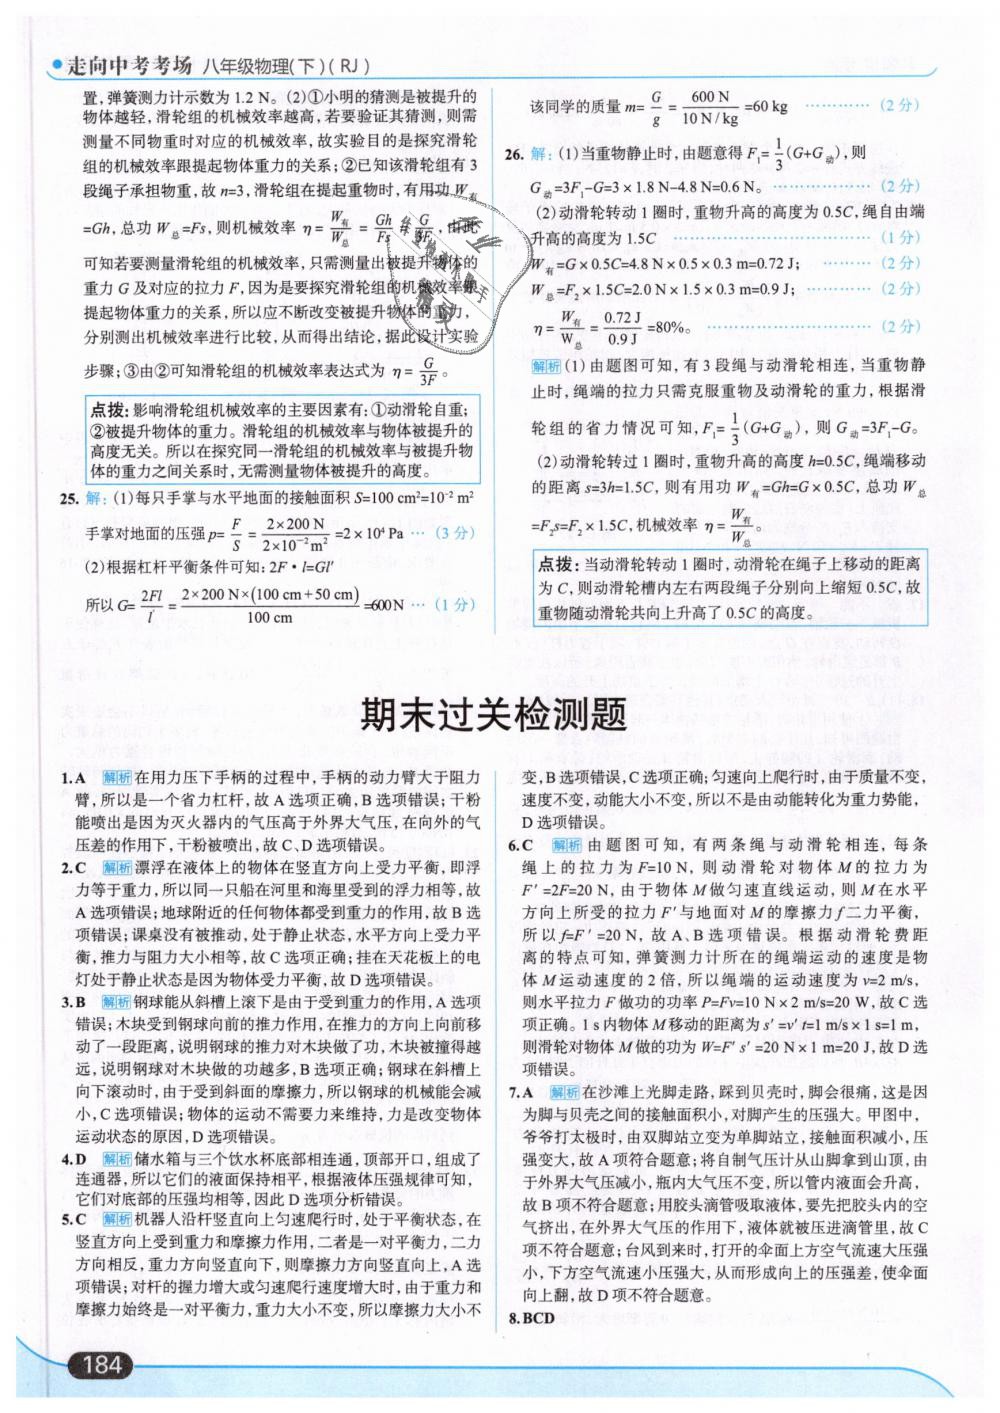 走向中考考场 八年级物理(下)(RJ)
置,弹簧测力计示数为 1.2 N。(2)①小明的猜测是被提升的
物体越轻,滑轮组的机械效率越高,若要验证其猜测,则需
测量不同物重时对应的机械效率,故实验目的是探究滑轮
组的机械效率跟提起物体重力的关系;②已知该滑轮组有 3
段绳子承担物重,故 n=3,滑轮组在提起重物时,有用功 W有
=Gh,总功 W总=Fs,则机械效率 η= W有/W总 = Gh/Fs = G/3F,由此
可知若要测量滑轮组的机械效率,只需测量出被提升物体的
重力 G 及对应的拉力 F,因为是要探究滑轮组的机械效率跟
提起物体重力的关系,所以应不断改变被提升物体的重力,
分别测出机械效率进行比较,从而得出结论,据此设计实验
步骤;③由②可知滑轮组的机械效率表达式为 η= G/3F。
点拨:影响滑轮组机械效率的主要因素有:①动滑轮自重;
②被提升物体的重力。滑轮组的机械效率与被提升物体的
高度无关。所以在探究同一滑轮组的机械效率与被提升物
体的重力之间关系时,无需测量物体被提升的高度。
25. 解:(1)每只手掌与水平地面的接触面积 S=100 cm²=10⁻² m²
手掌对地面的压强 p= F/S = 2×200 N/2×10⁻² m² =2×10⁴ Pa … (3 分)
(2)根据杠杆平衡条件可知:2F·l=Gl′
所以 G= 2Fl/l = 2×200 N×(100 cm+50 cm)/100 cm =600N … (1 分)
该同学的质量 m= G/g = 600 N/10 N/kg =60 kg ………… (2 分)
26. 解:(1)当重物静止时,由题意得 F₁= 1/3 (G+G动),则
G动=3F₁-G=3×1.8 N-4.8 N=0.6 N。 ……………… (2 分)
(2)动滑轮转动 1 圈时,重物升高的高度为 0.5C,绳自由端
升高的高度为 1.5C ……………………………… (1 分)
W有=G×0.5C=4.8 N×0.5×0.3 m=0.72 J; ………… (2 分)
W总=F₂×1.5C=2.0 N×1.5×0.3 m=0.9 J; ………… (2 分)
η= W有/W总 = 0.72 J/0.9 J =80%。 ……………………… (2 分)
解析 (1) 由题图可知,有 3 段绳与动滑轮相连,当重物静
止时,绳端的拉力只需克服重物及动滑轮的重力,根据滑
轮组的省力情况可知,F₁= 1/3 (G+G动),则 G动=3F₁-G。
(2)动滑轮转过 1 圈时,重物升高的高度 h=0.5C,绳端移动
的距离 s=3h=1.5C,则有用功 W有=Gh=G×0.5C,总功 W总
=F₂s=F₂×1.5C,机械效率 η= W有/W总。
点拨:当动滑轮转动 1 圈时,动滑轮在绳子上移动的距离
为 C,则动滑轮槽内左右两段绳子分别向上缩短 0.5C,故
重物随动滑轮共向上升高了 0.5C 的高度。
期末过关检测题
1. A 解析 在用力压下手柄的过程中,手柄的动力臂大于阻力
臂,所以是一个省力杠杆,故 A 选项正确,B 选项错误;干粉
能喷出是因为灭火器内的气压高于外界大气压,在向外的气
压差的作用下,干粉被喷出,故 C、D 选项错误。
2. C 解析 漂浮在液体上的物体在竖直方向上受力平衡,即浮
力等于重力,所以同一只船在河里和海里受到的浮力相等,故
A 选项错误;地球附近的任何物体都受到重力的作用,故 B 选
项错误;课桌没有被推动,处于静止状态,水平方向上受力平
衡,推力与阻力大小相等,故 C 选项正确;挂在天花板上的电
灯处于静止状态是因为物体受力平衡,故 D 选项错误。
3. B 解析 钢球能从斜槽上滚下是由于受到重力的作用,A 选项
错误;木块受到钢球向前的推力作用,在推力的方向上向前移
动了一段距离,说明钢球的推力对木块做了功,木块被撞得越
远,说明钢球对木块做的功越多,B 选项正确;钢球在斜槽上
向下滚动时,由于受到斜面的摩擦力,所以钢球的机械能会减
小,C 选项错误;物体的运动不需要力来维持,力是改变物体
运动状态的原因,D 选项错误。
4. D 解析 储水箱与三个饮水杯底部相连通,顶部开口,组成了
连通器,所以它们的液面保持相平,根据液体压强规律可知,
它们对底部的压强均相等,因此 D 选项分析错误。
5. C 解析 机器人沿杆竖直向上匀速爬行时,处于平衡状态,在
竖直方向上受到重力和摩擦力作用,二者是一对平衡力,二力
方向相反,重力方向竖直向下,则摩擦力方向竖直向上,A 选
项错误;对杆的握力增大或匀速爬行速度增大时,由于重力和
摩擦力始终是一对平衡力,重力大小不变,所以摩擦力大小不
变,B 选项错误,C 选项正确;匀速向上爬行时,由于质量不变,
速度不变,动能大小不变,所以不是由动能转化为重力势能,
D 选项错误。
6. C 解析 由题图可知,有两条绳与动滑轮相连,每条
绳上的拉力为 F=10 N,则动滑轮对物体 M 的拉力为
F′=2F=20 N,由于物体 M 做匀速直线运动,则 M 在水平
方向上所受的拉力 F′与地面对 M 的摩擦力 f 二力平衡,
所以 f=F′=20 N,故 A、B 选项错误。根据动滑轮费距
离的特点可知,弹簧测力计所在的绳端运动的速度是物
体 M 运动速度的 2 倍,所以绳端的运动速度为 v=2 m/s,
则水平拉力 F 做功的功率 P=Fv=10 N×2 m/s=20 W,故 C 选
项正确。1 s 内物体 M 移动的距离为 s′=v′t=1 m/s×1 s=1 m,
则滑轮对物体 M 做的功为 W=F′s′=20 N×1 m=20 J,故 D 选
项错误。
7. A 解析 在沙滩上光脚走路,踩到贝壳时,脚会很痛,这是因
为脚与贝壳之间的接触面积小,对脚产生的压强大。甲图中,
爷爷打太极时,由双脚站立变为单脚站立,接触面积减小,压
强变大,故 A 项符合题意;将自制气压计从山脚拿到山顶,由
于外界大气压减小,瓶内大气压不变,所以管内液面会升高,
故 B 项不符合题意;用胶头滴管吸取液体,要先把胶头内的空
气挤出,在外界大气压的作用下,液体就被压进滴管里,故 C
项不符合题意;台风到来时,打开的伞面上方空气流速大压强
小,下方空气流速小压强大,从而形成向上的压强差,使伞面
向上翻,故 D 项不符合题意。
8. BCD
184